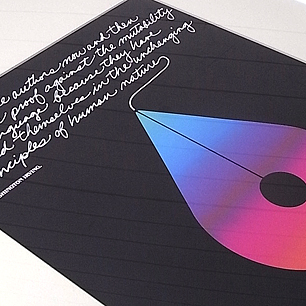 authors now and then
proof against the mutability
because they have
themselves in the unchanging
principles of human nature
WASHINGTON IRVING.